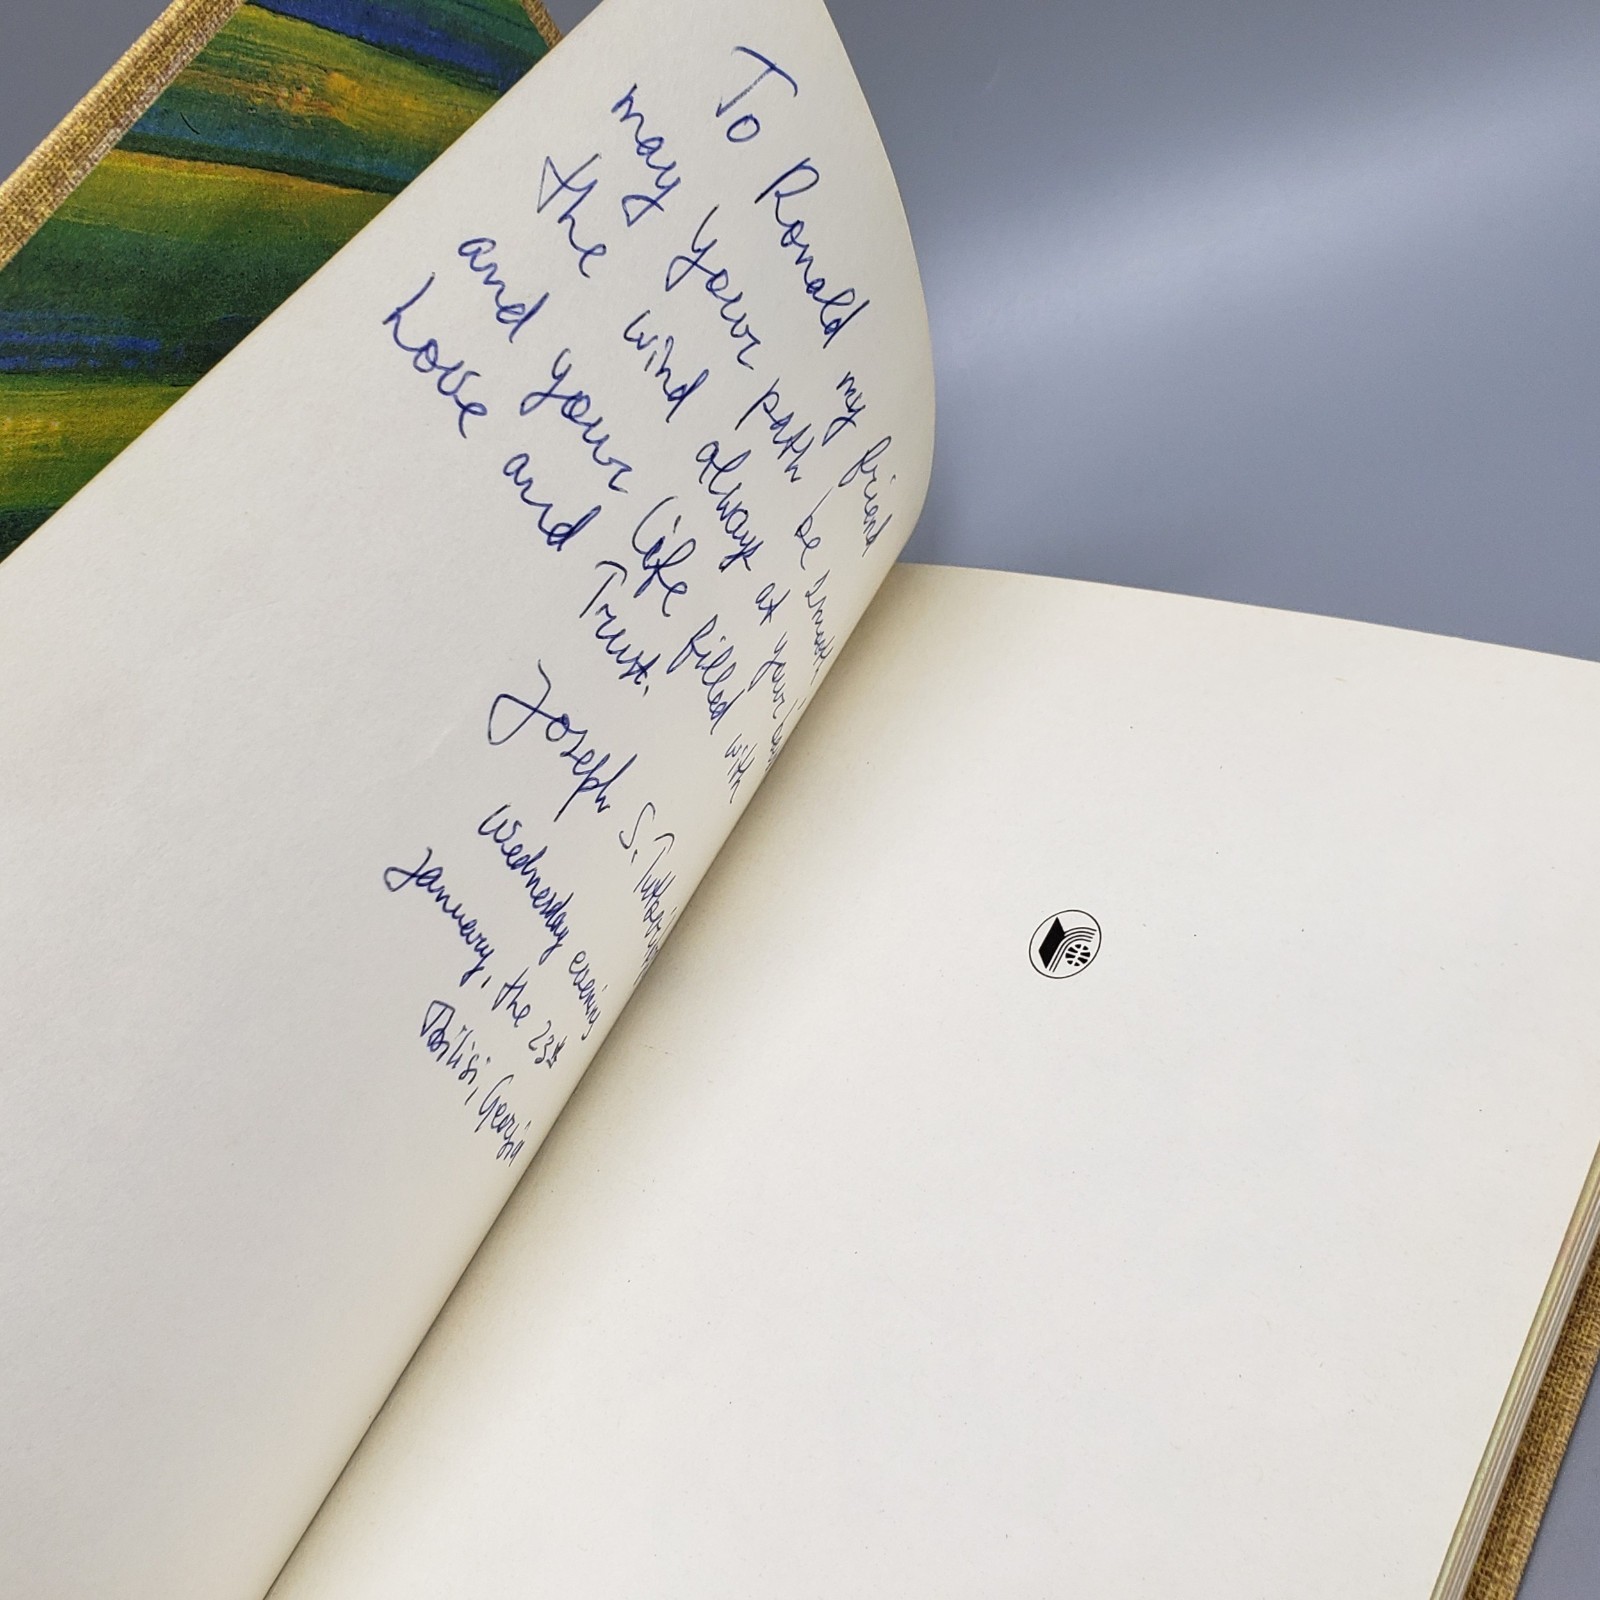 To Ronald my friend
may your path be smooth,
the wind always at your
and your life filled with
Love and Trust.
Joseph S.
Wednesday evening
January, the 23rd
Tbilisi, Georgia